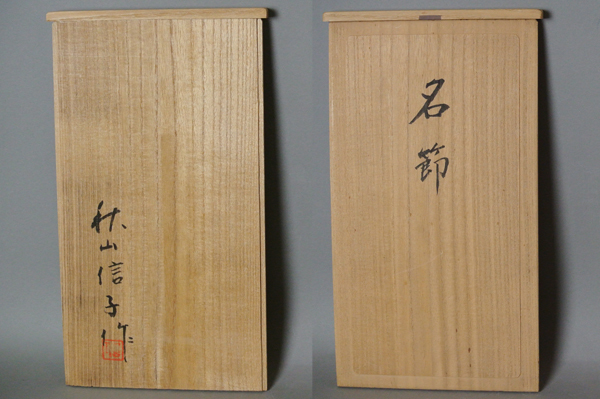 秋山信子作
名節